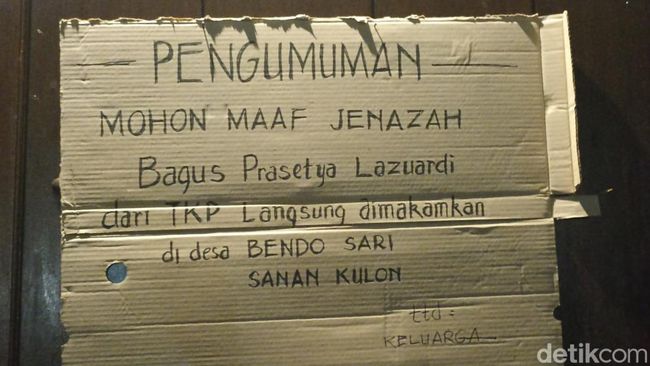 PENGUMUMAN
MOHON MAAF JENAZAH
Bagus Prasetya Lazuardi
dari TKP Langsung dimakamkan
di desa BENDO SARI
SANAN KULON
ttd:
KELUARGA
detikcom